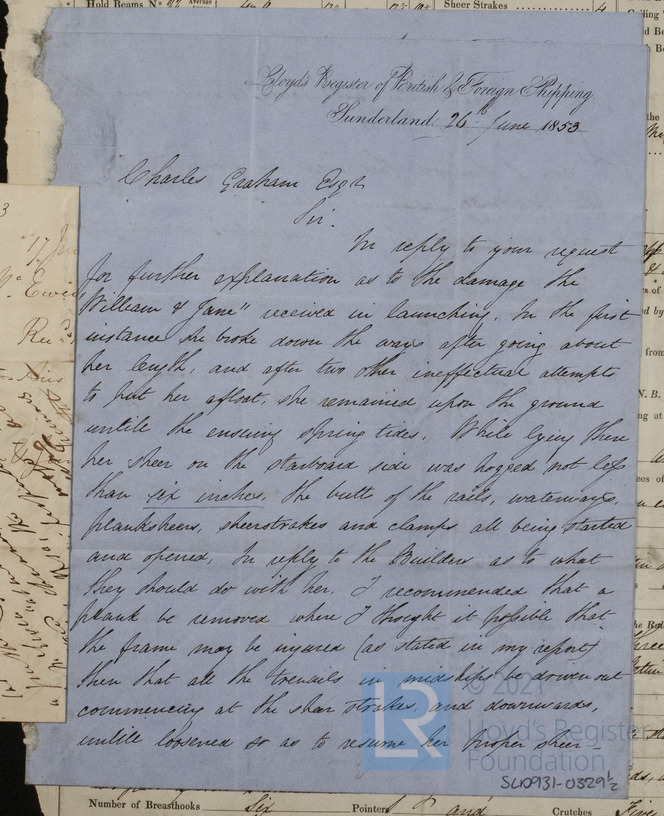 Hold Beams No
Average
Sheer Strakes
Lloyd's Register of British & Foreign Shipping.
Sunderland. 26th June 1853
Charles Graham Esqr
Sir.
In reply to your request
for further explanation as to the damage the
"William & Jane" received in launching. In the first
instance she broke down the ways after going about
her length, and after two other ineffectual attempts
to put her afloat, she remained upon the ground
untile the ensuing spring tides. While lying there
her sheer on the starboard side was hogged not less
than six inches, the butts of the rails, waterways,
planksheers, sheerstrakes and clamps all being started
and opened. In reply to the Builders as to what
they should do with her. I recommended that a
plank be removed where I thought it possible that
the frame may be injured (as stated in my report)
then that all the trenails in midships be driven out
commencing at the shear strakes, and downwards,
untile loosened so as to resume her proper sheer –
LR © 2021
Lloyd's Register
Foundation
SLD931-0329½
Number of Breasthooks Six Pointers and Crutches Five